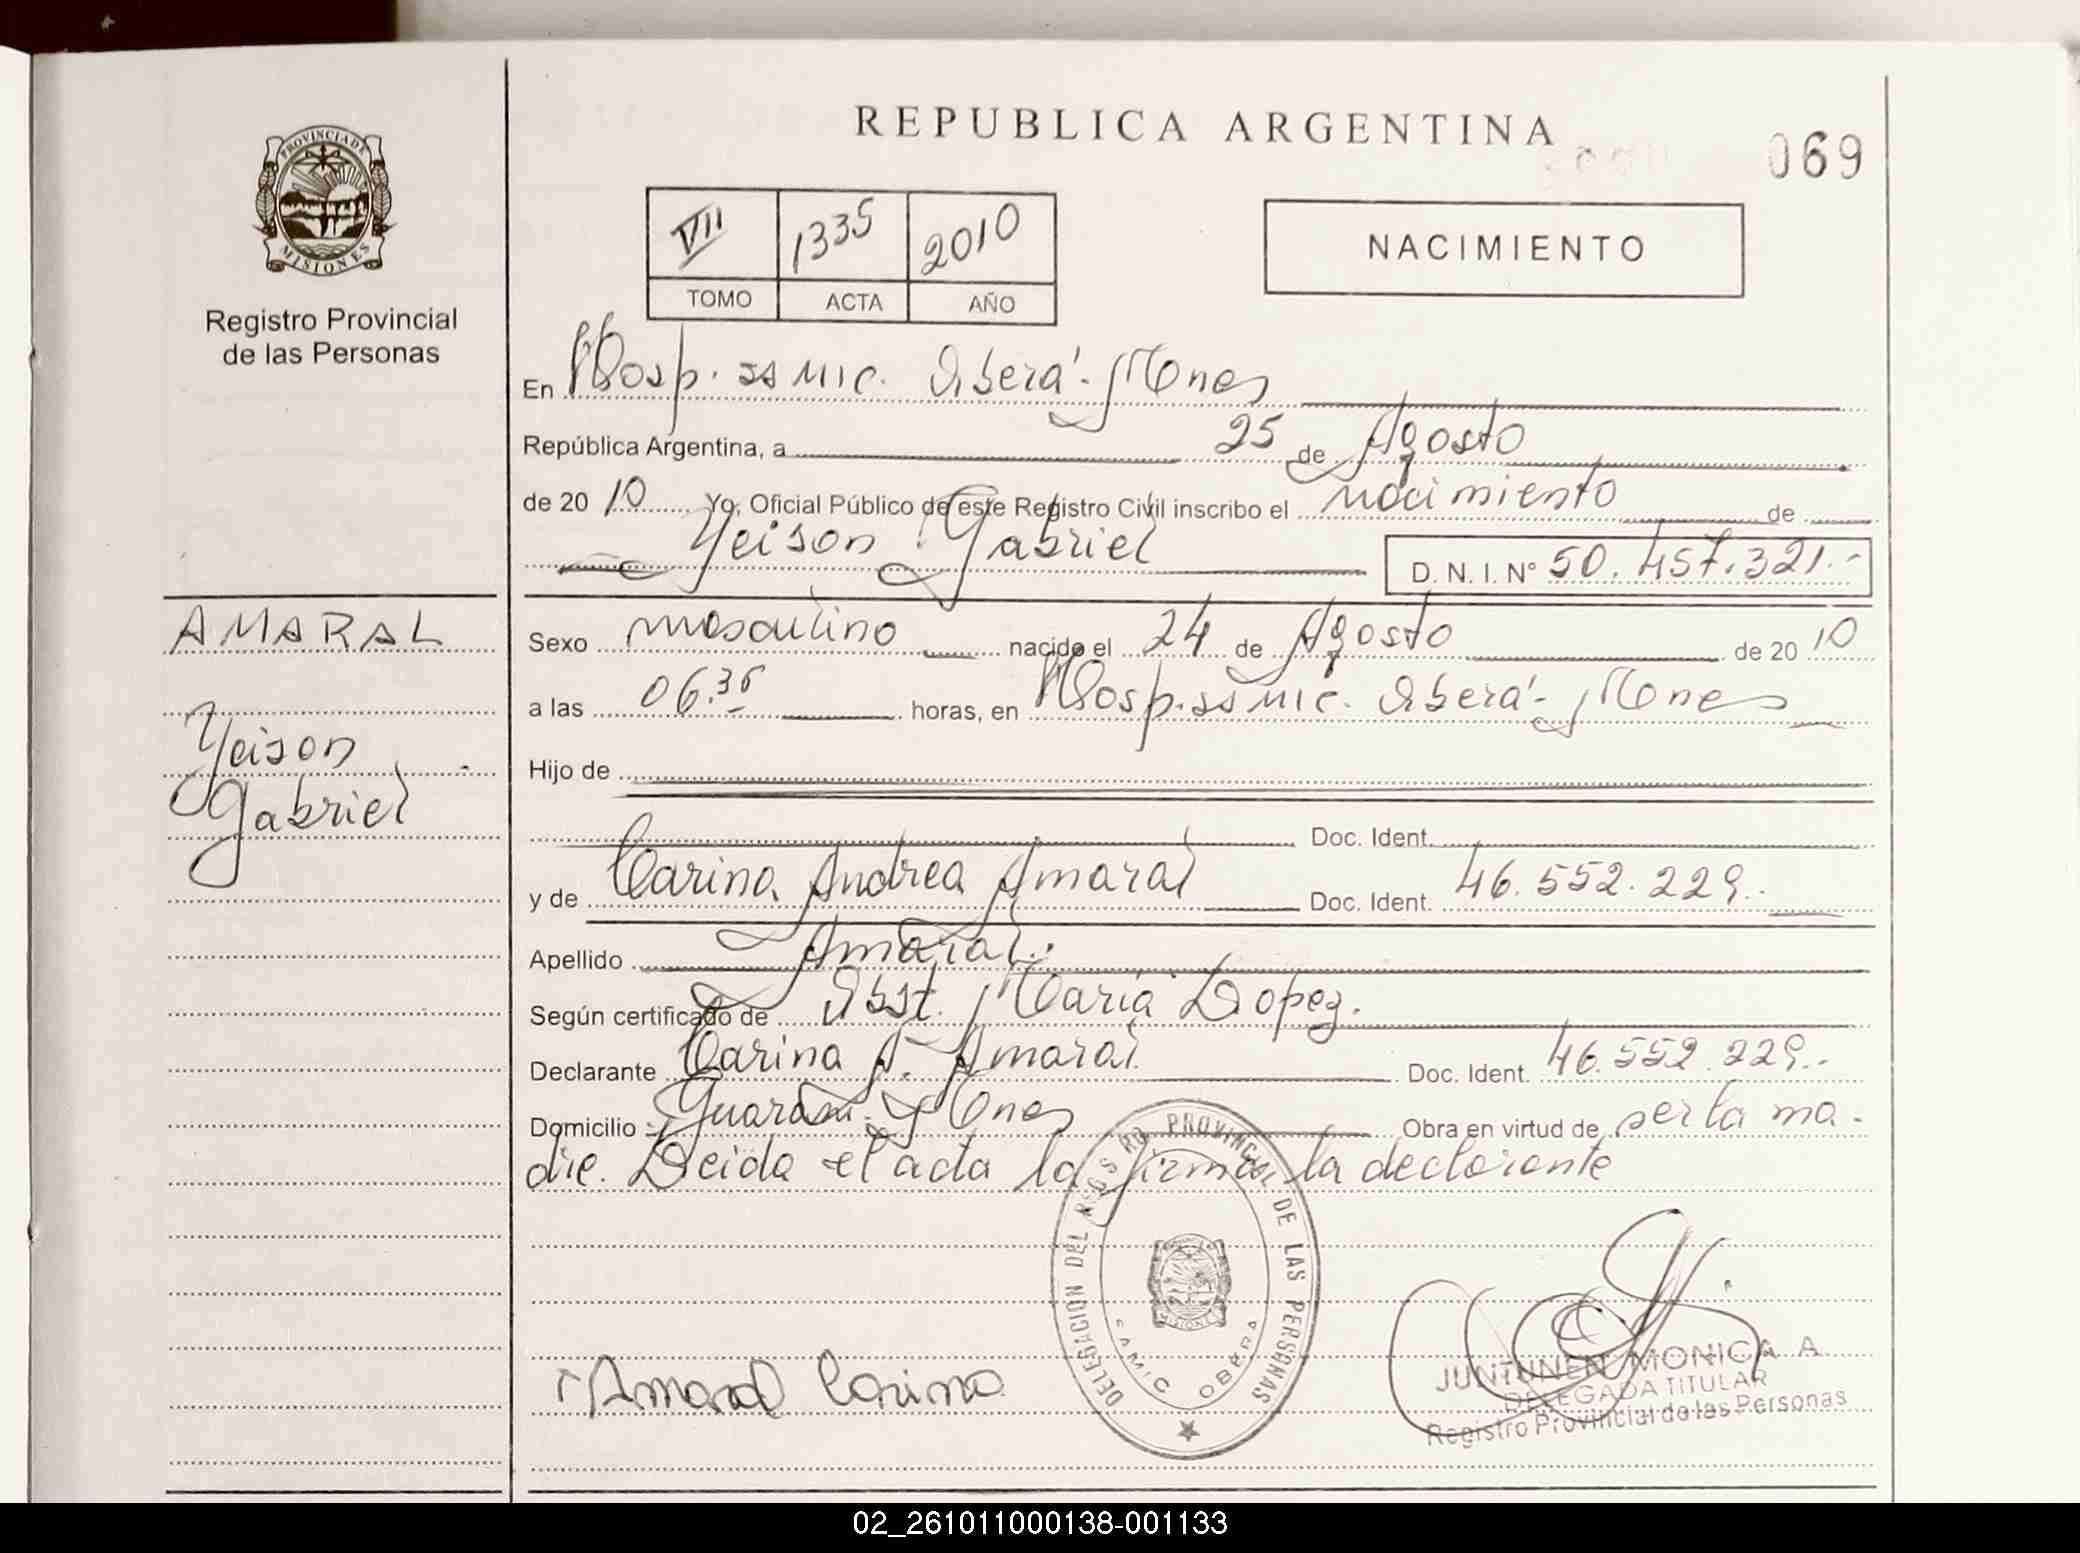 REPUBLICA ARGENTINA
069
PROVINCIA DE MISIONES
Registro Provincial
de las Personas
VII 1335 2010
TOMO ACTA AÑO
NACIMIENTO
En Hosp. ss MIC. Oberá - Mnes
República Argentina, a 25 de Agosto
de 2010 Yo, Oficial Público de este Registro Civil inscribo el nacimiento de
Yeison Gabriel D. N. I. N° 50.457.321.-
AMARAL
Yeison
Gabriel
Sexo masculino nacido el 24 de Agosto de 2010
a las 06.36 horas, en Hosp. ss MIC. Oberá - Mnes
Hijo de
Doc. Ident.
y de Carina Andrea Amaral Doc. Ident. 46.552.229.-
Apellido Amaral.
Según certificado de Obst. María Lopez.
Declarante Carina A. Amaral Doc. Ident. 46.552.229.-
Domicilio Guaraní - Mnes Obra en virtud de ser la ma-
dre. Leida el acta la firma la declarante
DELEGACION DEL REGISTRO PROVINCIAL DE LAS PERSONAS
SAMIC OBERA
Amaral Carina
JUNTUNEN MONICA A
DELEGADA TITULAR
Registro Provincial de las Personas
02_261011000138-001133